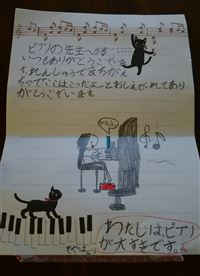 ピアノの先生へ
いつもありがとうございま
す。れんしゅうでまちがえ
ちゃてここはこうだよっとおしえてくれてあり
がとうございます。
わたしはピアノ
が大すきです。